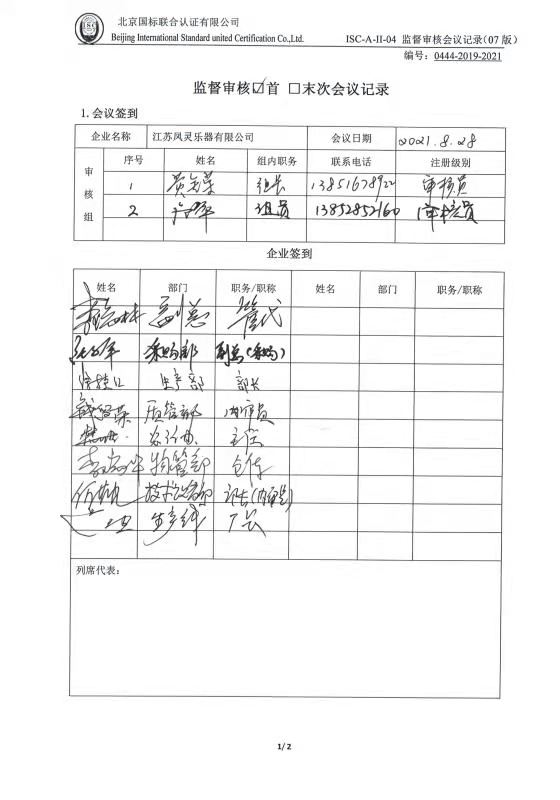 北京国标联合认证有限公司
Beijing International Standard united Certification Co.,Ltd.
ISC-A-II-04 监督审核会议记录(07 版)
编号: 0444-2019-2021
监督审核☑首 □末次会议记录
1. 会议签到
企业名称 江苏凤灵乐器有限公司 会议日期 2021.8.28
审核组 序号 姓名 组内职务 联系电话 注册级别
1 组长 13851678922 审核员
2 组员 13852852160 审核员
企业签到
姓名 部门 职务/职称 姓名 部门 职务/职称
副总 管代
采购部 副总(采购)
生产部 部长
质管部 内审员
主任
物管部 仓储
技术设备部 部长(内审员)
生产科 厂长
列席代表:
1/2